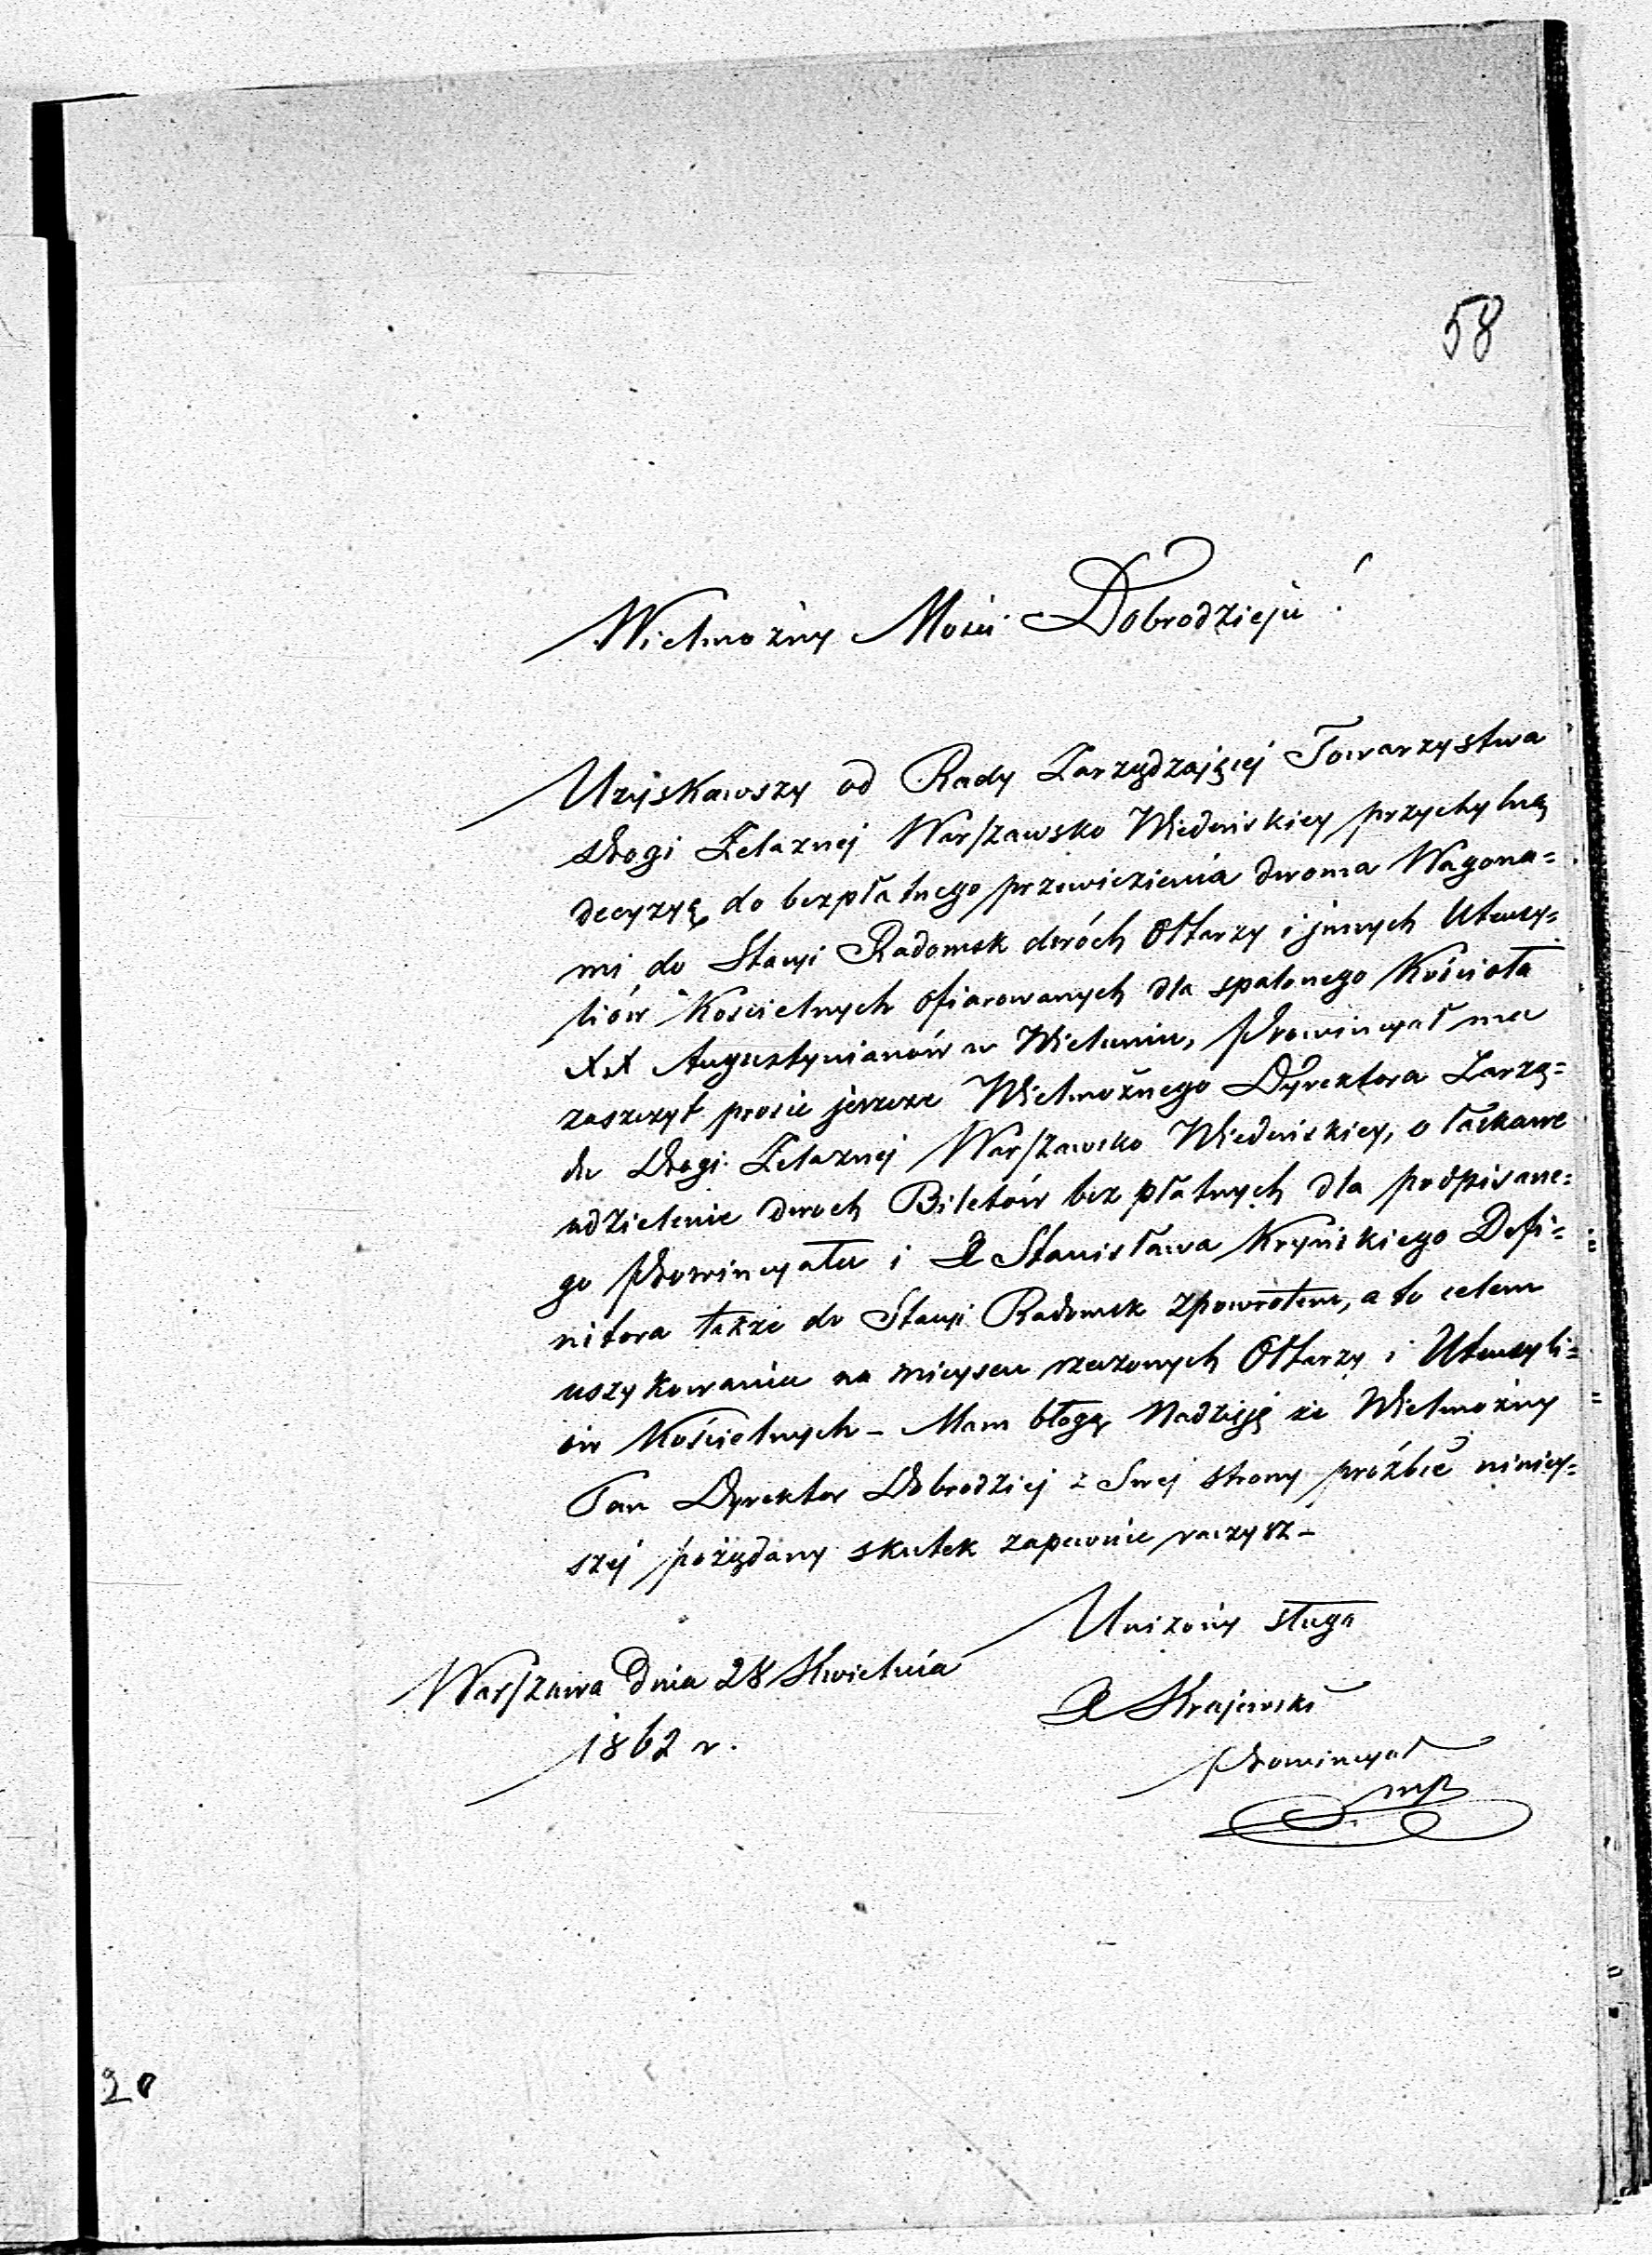 58
Wielmożny Mości Dobrodzieju!
Uzyskawszy od Rady Zarządzającej Towarzystwa
drogi Żelaznej Warszawsko Wiedeńskiey przychylną
decyzyę do bezpłatnego przewiezienia dwoma Wagona=
mi do Stacyi Radomsk dwóch Ołtarzy i jnnych Utensy=
liów Kościelnych ofiarowanych dla spalonego Kościoła
XX Augustyanianów w Wieluniu, Prowincyał ma
zaszczyt prosić jeszcze Wielmożnego Dyrektora Zarzą=
du Drogi Żelaznej Warszawsko Wiedeńskiey, o łaskawe
udzielenie dwoch Biletów bezpłatnych dla podpisane=
go Prowincyała i X Stanisława Kryńskiego Defi=
nitora także do Stacyi Radomsk zpowrotem, a to celem
uszykowania na mieyscu rzeczonych Ołtarzy i Utensyli=
ów Kościelnych – Mam błogą Nadzieję że Wielmożny
Pan Dyrektor Dobrodziej z Swej strony prożbie niniey=
szej pożądany skutek zapewnić raczysz –
Uniżony sługa
Warszawa Dnia 28 Kwietnia
1862 r.
X Krajewski
Prowincyał
mp
20